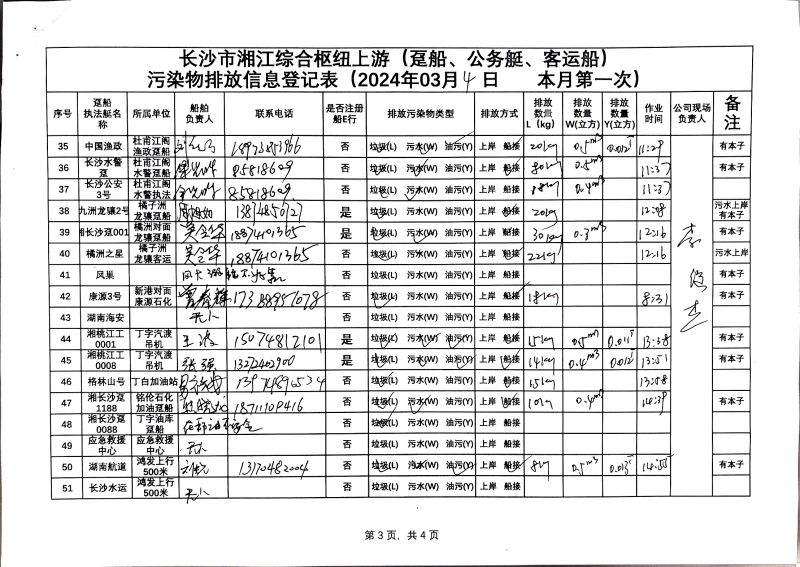 长沙市湘江综合枢纽上游（趸船、公务艇、客运船）
污染物排放信息登记表（2024年03月4日 本月第一次）
序号 趸船执法艇名称 所属单位 船舶负责人 联系电话 是否注册船E行 排放污染物类型 排放方式 排放数量L（kg） 排放数量W(立方) 排放数量Y(立方) 作业时间 公司现场负责人 备注
35 中国渔政 杜甫江阁渔政趸船 18973853966 否 垃圾(L) 污水(W) 油污(Y) 上岸 船接 20kg 0.5m³ 11:29 有本子
36 长沙水警趸 杜甫江阁水警趸船 85818609 否 垃圾(L) 污水(W) 油污(Y) 上岸 船接 80kg 0.5m³ 11:37 有本子
37 长沙公安3号 杜甫江阁水警执法 85818609 否 垃圾(L) 污水(W) 油污(Y) 上岸 船接 18kg 0.4m³ 11:37 有本子
38 九洲龙骧2号 橘子洲龙骧趸船 是 垃圾(L) 污水(W) 油污(Y) 上岸 船接 20kg 污水上岸有本子
39 湘长沙趸001 橘洲对面龙骧趸船 18874101365 是 垃圾(L) 污水(W) 油污(Y) 上岸 船接 30kg 0.3m³ 12:16 有本子
40 橘洲之星 橘子洲龙骧客运 18874101365 否 垃圾(L) 污水(W) 油污(Y) 上岸 船接 22kg 12:16 污水上岸
41 风巢 否 垃圾(L) 污水(W) 油污(Y) 上岸 船接 有本子
42 康源3号 新港对面康源石化 17388957078 否 垃圾(L) 污水(W) 油污(Y) 上岸 船接 18kg 8:31 有本子
43 湖南海安 无人 否 垃圾(L) 污水(W) 油污(Y) 上岸 船接
44 湘桃江工0001 丁字汽渡吊机 王波 15074812101 是 垃圾(L) 污水(W) 油污(Y) 上岸 船接 15kg 0.5m³ 13:38 有本子
45 湘桃江工0008 丁字汽渡吊机 张强 13272402900 是 垃圾(L) 污水(W) 油污(Y) 上岸 船接 14kg 0.4m³ 13:51 有本子
46 格林山号 丁白加油站 否 垃圾(L) 污水(W) 油污(Y) 上岸 船接 15kg 13:58
47 湘长沙趸1188 铭伦石化加油趸船 18711109416 否 垃圾(L) 污水(W) 油污(Y) 上岸 船接 10kg 0.4m³ 14:39 有本子
48 湘长沙趸0088 丁字油库趸船 否 垃圾(L) 污水(W) 油污(Y) 上岸 船接
49 应急救援中心 应急救援中心 无人 否 垃圾(L) 污水(W) 油污(Y) 上岸 船接
50 湖南航道 鸿发上行500米 13170482004 是 垃圾(L) 污水(W) 油污(Y) 上岸 船接 8kg 0.5m³ 14:55 有本子
51 长沙水运 鸿发上行500米 无人 否 垃圾(L) 污水(W) 油污(Y) 上岸 船接
第 3 页，共 4 页